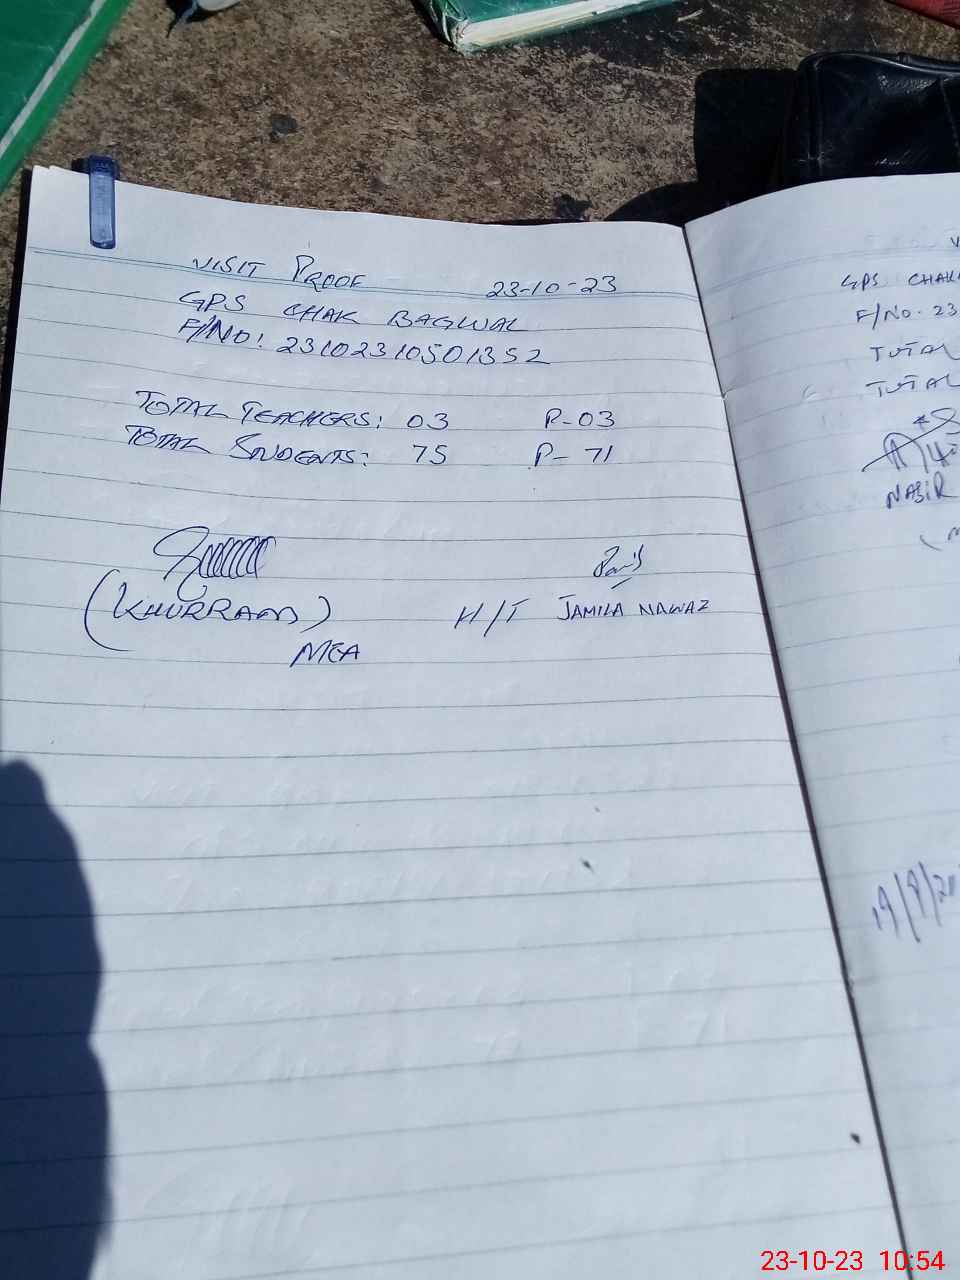 VISIT PROOF 23-10-23
GPS CHAK BAGWAL
F/NO: 23102310501352
TOTAL TEACHERS: 03 P-03
TOTAL STUDENTS: 75 P- 71
(KHURRAM)
MEA
H/T JAMILA NAWAZ
GPS CHAK
F/NO. 23
TOTAL
TOTAL
NASIR
19/9/20
23-10-23 10:54